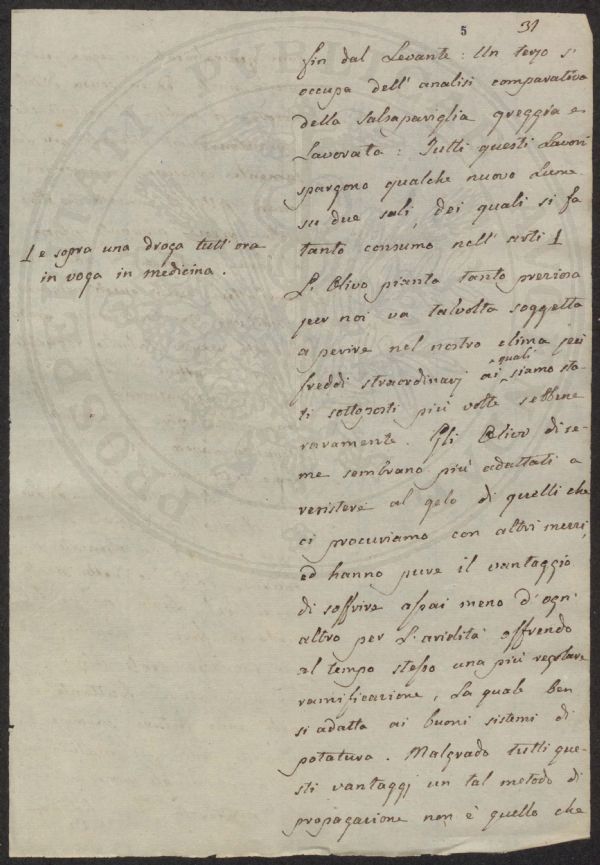 5
31
fin dal Levante: Un terzo s'
occupa dell' analisi comparativa
della Salsapariglia greggia e
Lavorata: Tutti questi Lavori
spargono qualche nuovo Lume
su due sali, dei quali si fa
tanto consumo nell' arti 1
1 e sopra una droga tutt' ora
in voga in medicina.
L' Olivo pianta tanto preziosa
per noi va talvolta soggetta
a perire nel nostro clima pei
freddi straordinarj ai quali siamo sta-
ti sottoposti più volte sebbene
raramente. Gli Olivi di se-
me sembrano più adattati a
resistere al gelo di quelli che
ci procuriamo con altri mezzi,
ed hanno pure il vantaggio
di soffrire assai meno d' ogn'
altro per L' aridità offrendo
al tempo stesso una più regolare
ramificazione, La quale ben
si adatta ai buoni sistemi di
potatura. Malgrado tutti que-
sti vantaggj un tal metodo di
propagazione non è quello che